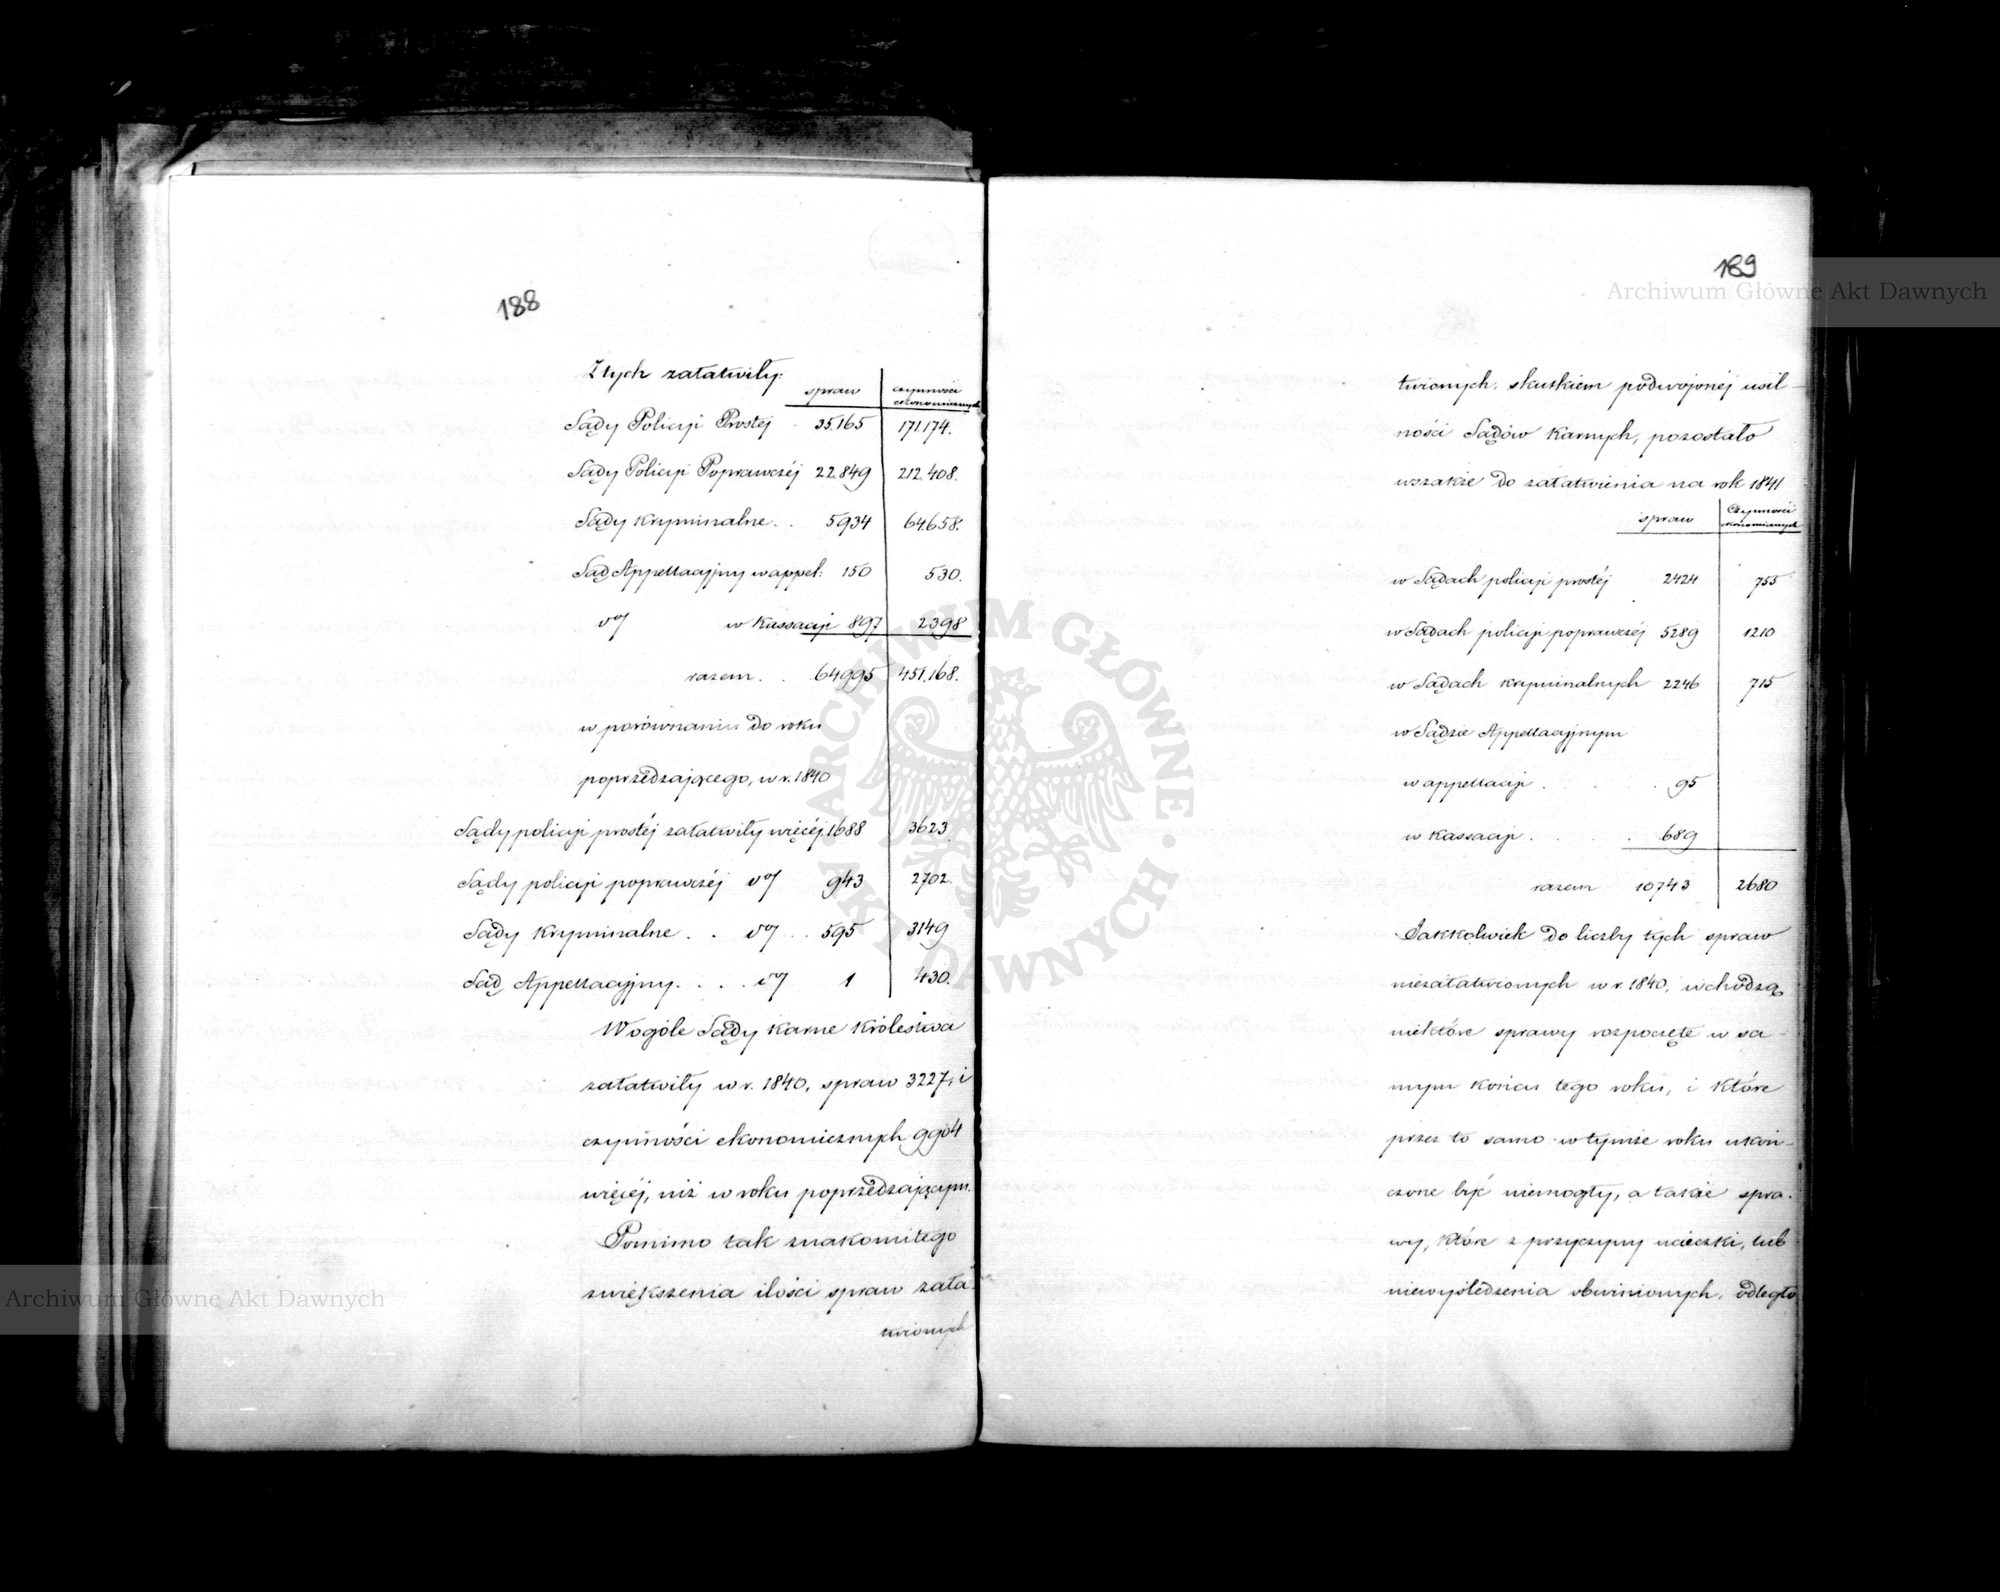 188
Z tych załatwiły:
spraw czynności ekonomicznych
Sądy Policyi Prostej 35.165 171.174.
Sądy Policyi Poprawczéj 22.849 212.408.
Sądy Kryminalne . . 5934 64.658.
Sąd Appellacyjny w appel: 150 530.
w Kassacyi 897 2398
razem . . 64995 451.168.
w porównaniu do roku
poprzedzającego, w r. 1840
Sądy policyi prostéj załatwiły więcéj 1688 3623
Sądy policyi poprawczéj 943 2702.
Sądy Kryminalne . . . . 595 3149
Sąd Appellacyjny . . . . 1 430.
Wogóle Sądy karne Królestwa
załatwiły w r. 1840, spraw 3227, i
czynności ekonomicznych 9904
więcéj, niż w roku poprzedzającym.
Pomimo tak znakomitego
zwiększenia ilości spraw zała-
twionych
189
twionych, skutkiem podwojonéj usil-
ności Sądów Karnych, pozostało
wszakże do załatwienia na rok 1841
spraw Czynności ekonomicznych
w Sądach policyi prostéj 2424 755
w Sądach policyi poprawczéj 5289 1210
w Sądach kryminalnych 2246 715
w Sądzie Appellacyjnym
w appellacyi . . . . 95
w Kassacyi . . . . 689
razem 10743 2680
Jakkolwiek do liczby tych spraw
niezałatwionych w r. 1840, wchodzą
niektóre sprawy rozpoczęte w sa-
mym końcu tego roku, i które
przez to samo w tymże roku ukoń-
czone być niemogły, a także spra-
wy, które z przyczyny ucieczki, lub
niewyśledzenia obwinionych, odległo
Archiwum Główne Akt Dawnych
Archiwum Główne Akt Dawnych
ARCHIWUM GŁÓWNE · AKT DAWNYCH ·